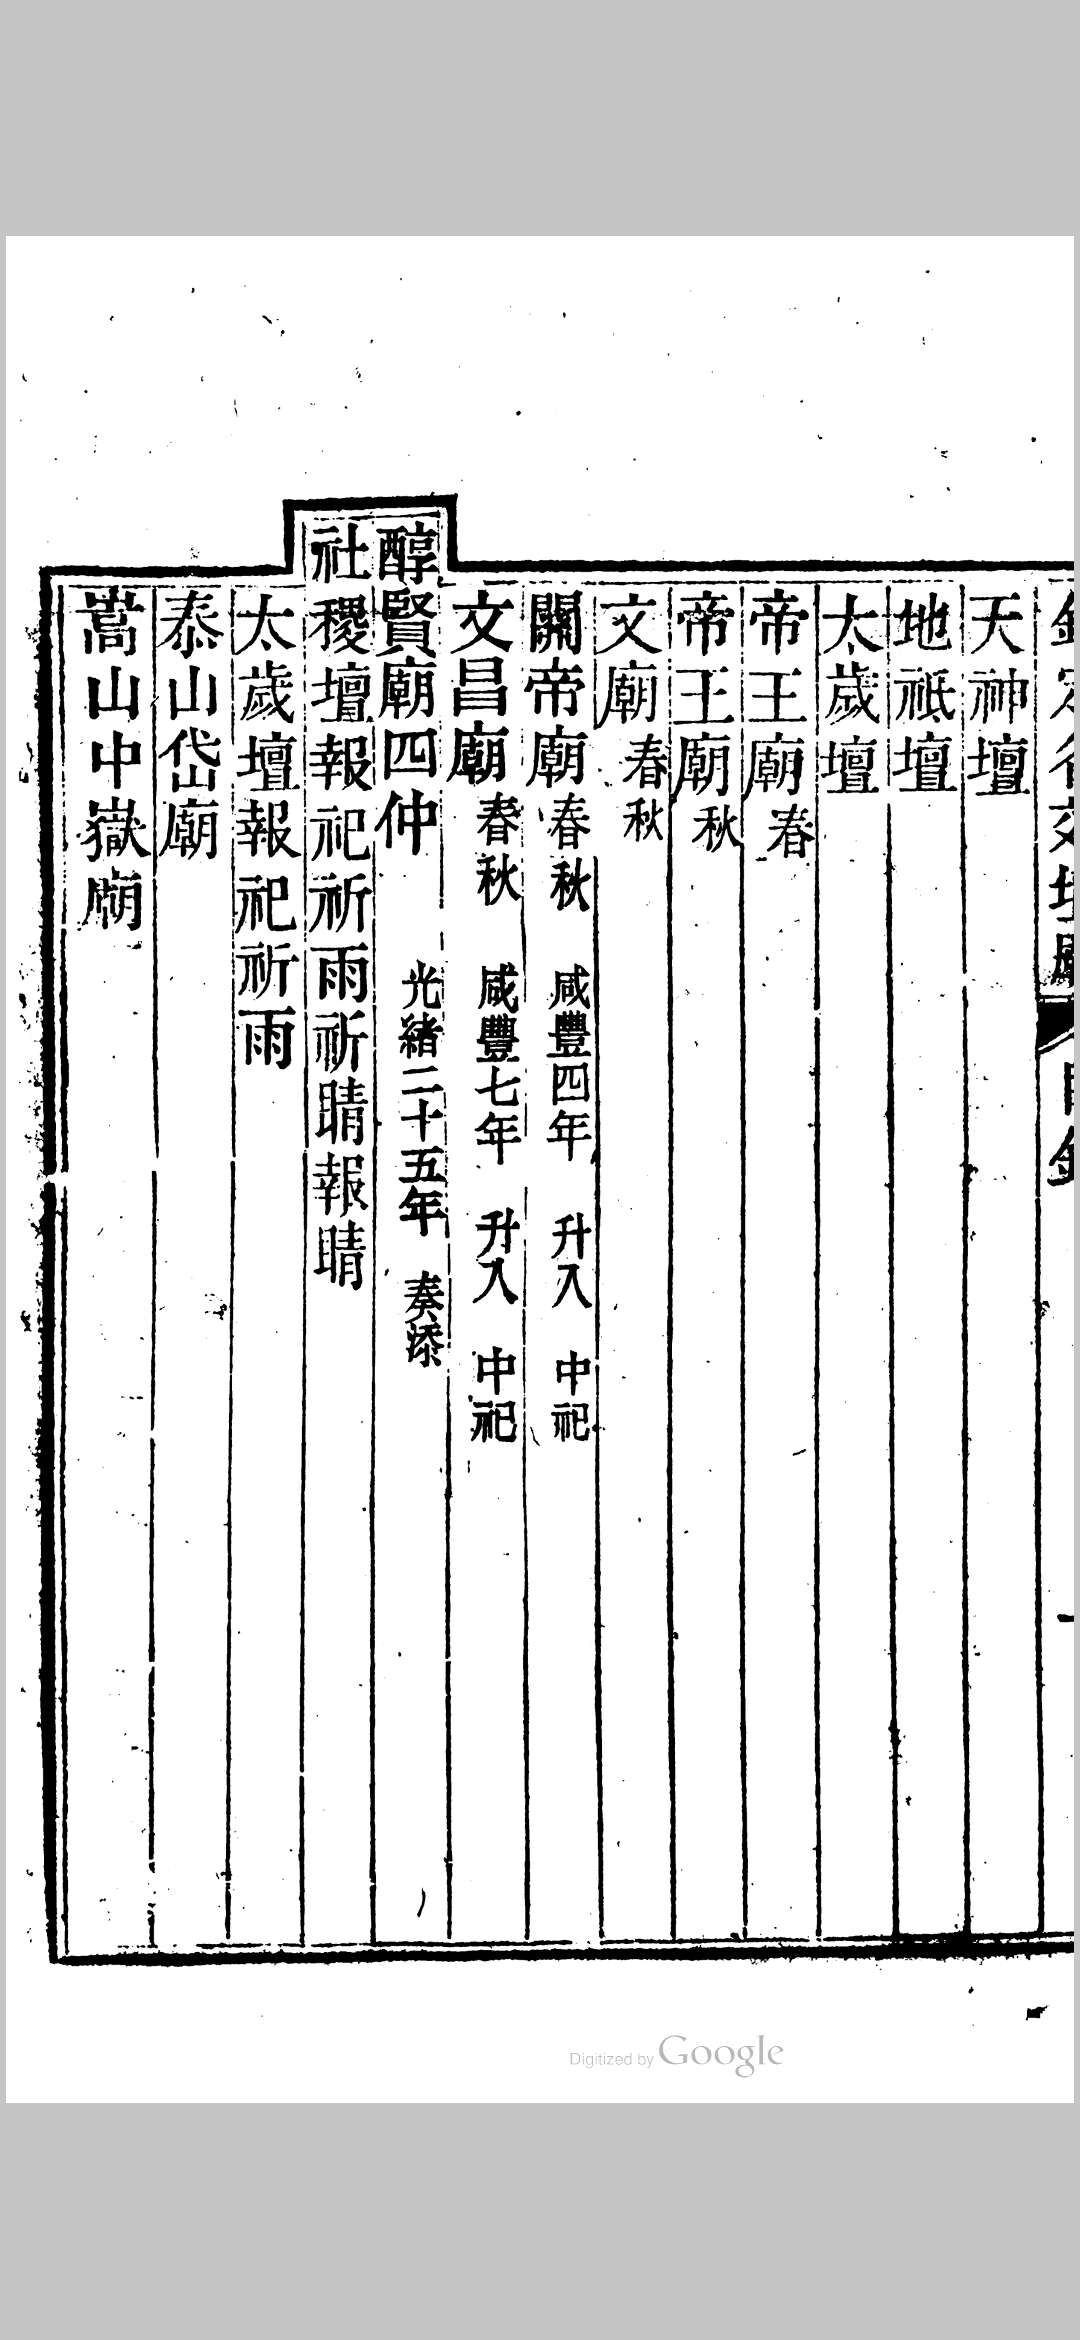 天神壇
地祇壇
太歲壇
帝王廟春
帝王廟秋
文廟春秋
關帝廟春秋 咸豐四年 升入 中祀
文昌廟春秋 咸豐七年 升入 中祀
醇賢廟四仲 光緒二十五年 奏添
社稷壇報祀祈雨祈晴報晴
太歲壇報祀祈雨
泰山岱廟
嵩山中嶽廟
Digitized by Google